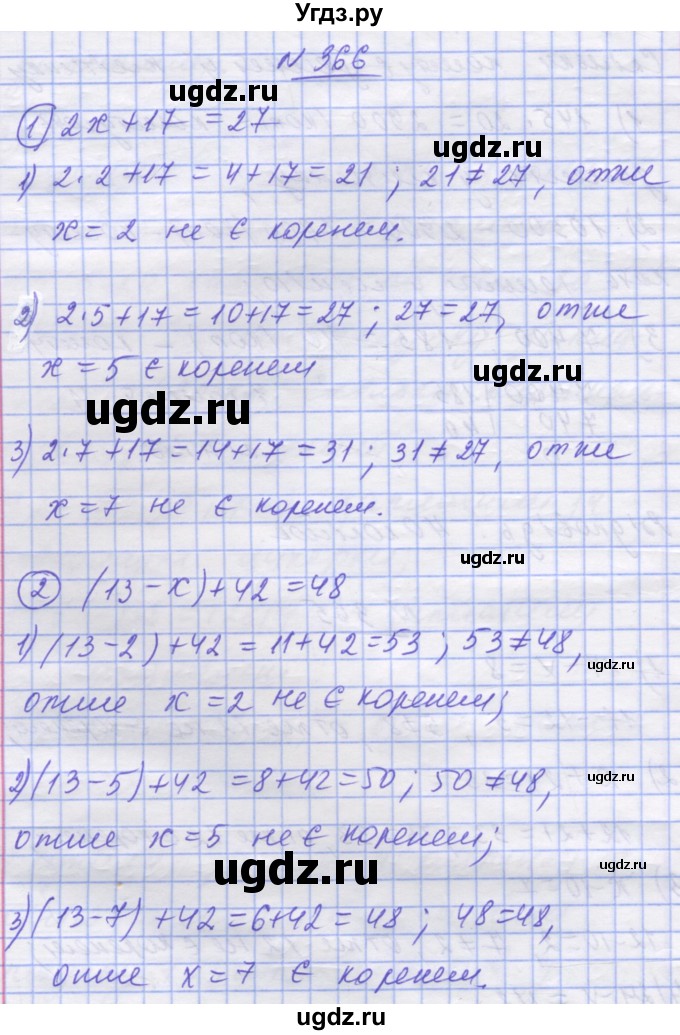 Угдз.ру
№ 366
ugdz.ru
① 2x+17 =27
ugdz.ru
1) 2·2+17 = 4+17=21 ; 21≠27, отже
x=2 не є коренем.
2) 2·5+17 =10+17=27 ; 27=27, отже
x =5 є коренем
ugdz.ru
ugdz.ru
3) 2·7+17=14+17=31 ; 31≠27, отже
x=7 не є коренем.
ugdz.ru
② (13-x)+42 =48
1) (13-2)+42 = 11+42=53 ; 53≠48,
ugdz.ru
отже x=2 не є коренем;
2) (13-5)+42 =8+42=50; 50≠48,
ugdz.ru
отже x=5 не є коренем;
ugdz.ru
3) (13-7)+42=6+42= 48 ; 48=48,
ugdz.ru
отже x=7 є коренем.
ugdz.ru